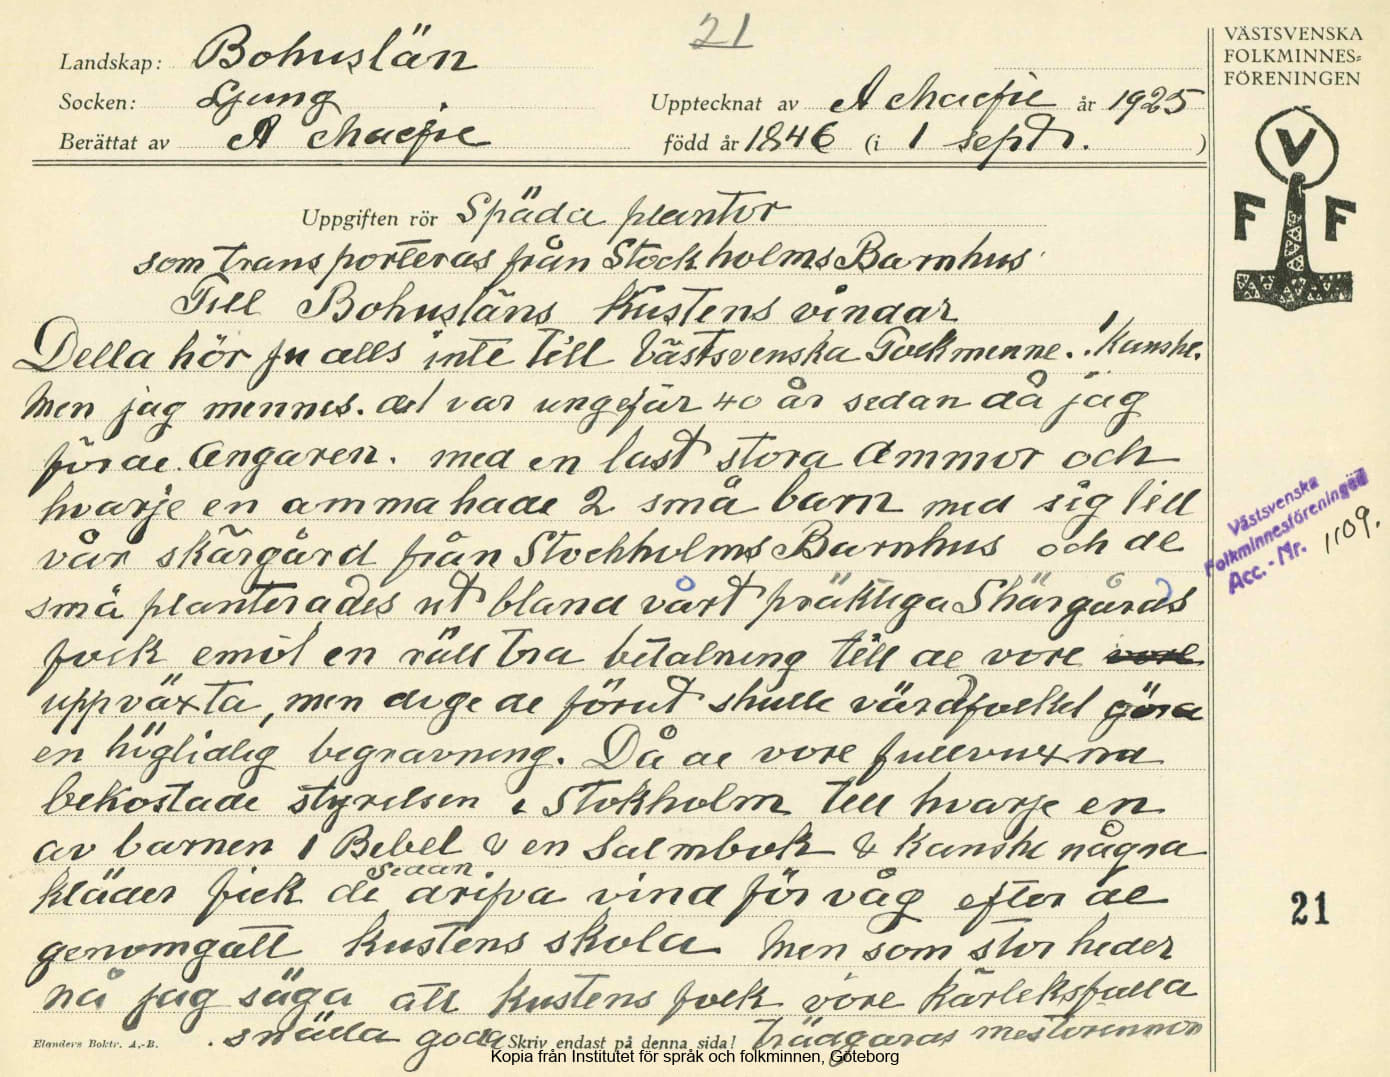 21
Landskap: Bohuslän
Socken: Ljung
Upptecknat av A Chaefie år 1925
Berättat av A Chaefie född år 1846 (i 1 sept. )
VÄSTSVENSKA
FOLKMINNES=
FÖRENINGEN
V
F F
Uppgiften rör Späda plantor
som transporteras från Stockholms Barnhus
Till Bohusläns Kustens vindar
Detta hör ju alls inte till Västsvenska Folkminne. ! Kanske.
Men jag minnes. det var ungefär 40 år sedan då jag
förde Ångaren. med en last stora Ammor och
hvarje en amma hade 2 små barn med sig till
vår skärgård från Stockholms Barnhus och de
små planterades ut bland vårt präktiga Skärgårds
folk emot en rätt bra betalning till de vore
uppväxta, men doge de förut skulle värdfolket göra
en höglidlig begravning. Då de vore fullvuxna
bekostade styrelsen i Stokholm till hvarje en
av barnen 1 Bibel & en Salmbok & Kanske några
kläder fick de sedan drifva vind för våg efter de
genomgått kustens skola Men som stor heder
må jag säga att kustens folk vore kärleksfulla
snälla goda trädgårds mestorinnor
Elanders Boktr. A.-B.
Skriv endast på denna sida!
Västsvenska
Folkminnesföreningen
Acc. - Nr. 1109.
21
Kopia från Institutet för språk och folkminnen, Göteborg